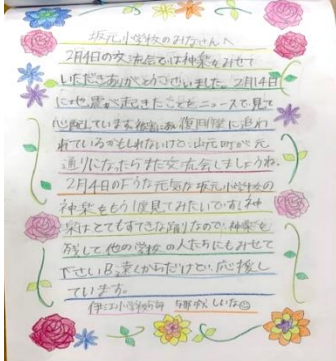 坂元小学校のみなさんへ
2月4日の交流会では神楽をみせて
いただきありがとうございました。2月14日
に地震が起きたことをニュースで見て
心配しています。復旧作業に追わ
れているかもしれないけど、山元町が元
通りになったらまた交流会しましょうね。
2月4日のような元気な坂元小学校の
神楽をもう1度見てみたいです。神
楽はとてもすてきな踊りなので、神楽を
残して他の学校の人たちにもみせて
下さい。遠くからだけど、応援し
ています。
伊江小学校